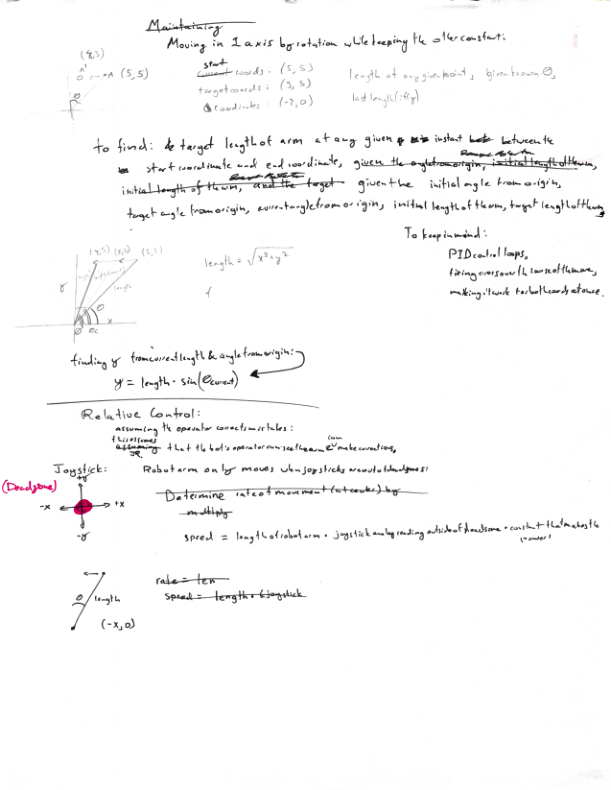 Maintaining
Moving in 1 axis by rotation while keeping the other constant:
(3,5)
A' A (5,5)
θ
start
current coords: (5,5)
target coords: (3,5)
Δ coordinates: (-2,0)
length at any given point, given known θ,
last length
to find: target length of arm at any given instant between the
start coordinate and end coordinate, given the angle from origin, initial length of the arm,
initial length of the arm, and the target given the initial angle from origin,
target angle from origin, current angle from origin, initial length of the arm, target length of the arm
To keep in mind:
PID control loops,
fixing errors over the course of the move,
making it work for both coords at once.
(5,5)
length
length = √x²+y²
y
θ
x
finding y from current length & angle from origin:
y = length · sin(θcurrent)
Relative Control:
assuming the operator corrects mistakes:
this assumes
assuming that the bot's operator can see the arm & make corrections,
Joystick: Robot arm only moves when joysticks are out of deadzones:
(Deadzone)
+y
-x +x
-y
Determine rate of movement (at center) by
multiply
speed = length of robot arm · joystick analog reading outside of deadzone · constant that makes this
power!
θ length
(-x,0)
rate = len
speed = length · (joystick